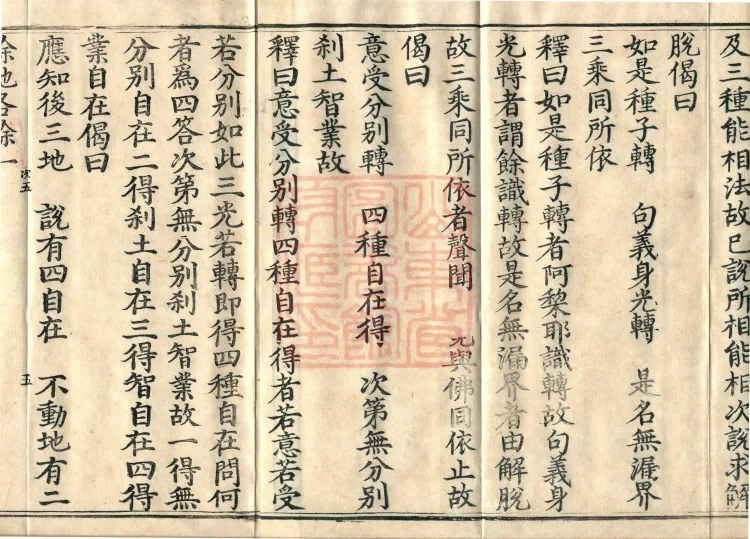 及三種能相法故已說所相能相次說求解
脫偈曰
如是種子轉　句義身光轉　是名無漏界
三乘同所依
釋曰如是種子轉者阿黎耶識轉故句義身
光轉者謂餘識轉故是名無漏界者由解脫
故三乘同所依者聲聞　與佛同依止故
偈曰
意受分別轉　四種自在得　次第無分別
刹土智業故
釋曰意受分別轉四種自在得者若意若受
若分別如此三光若轉即得四種自在問何
者為四答次第無分別刹土智業故一得無
分別自在二得刹土自在三得智自在四得
業自在偈曰
應知後三地　說有四自在　不動地有二
餘地各餘一